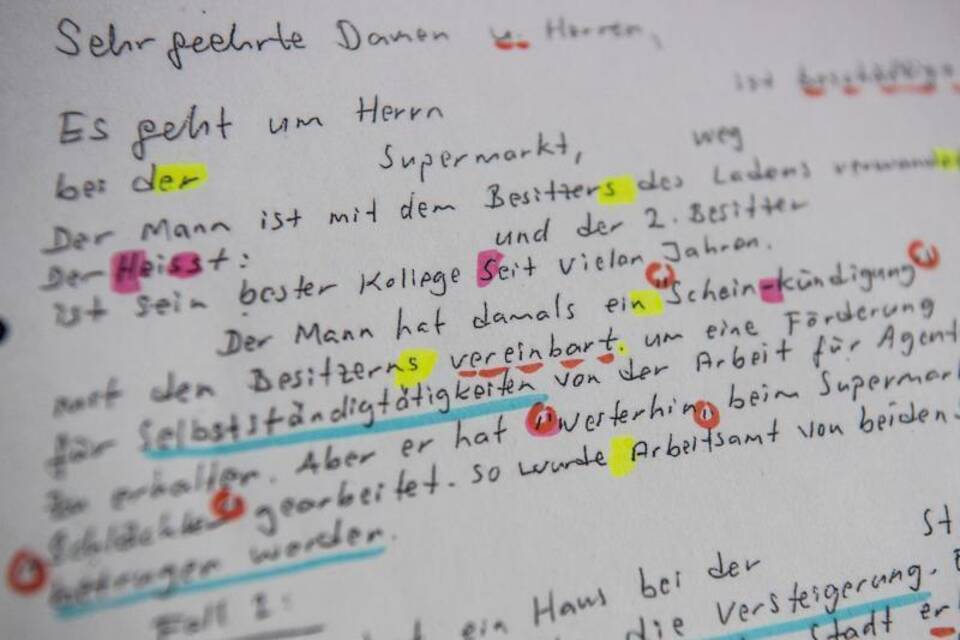 Sehr geehrte Damen u. Herren,
ist beschäftigt
Es geht um Herrn
bei der Supermarkt, weg
Der Mann ist mit dem Besitzers des Ladens verwandet
Der Heisst: und der 2. Besitter
ist sein bester Kollege Seit vielen Jahren.
Der Mann hat damals ein "Schein-kündigung"
mit den Besitzerns vereinbart. um eine Förderung
für Selbstständigtätigkeiten von der Arbeit für Agent
zu erhalten. Aber er hat "weiterhin" beim Supermar
gearbeitet. so wurde Arbeitsamt von beiden
betrogen worden.
St
Fall 2:
ein Haus bei der
die Versteigerung.
Stadt er